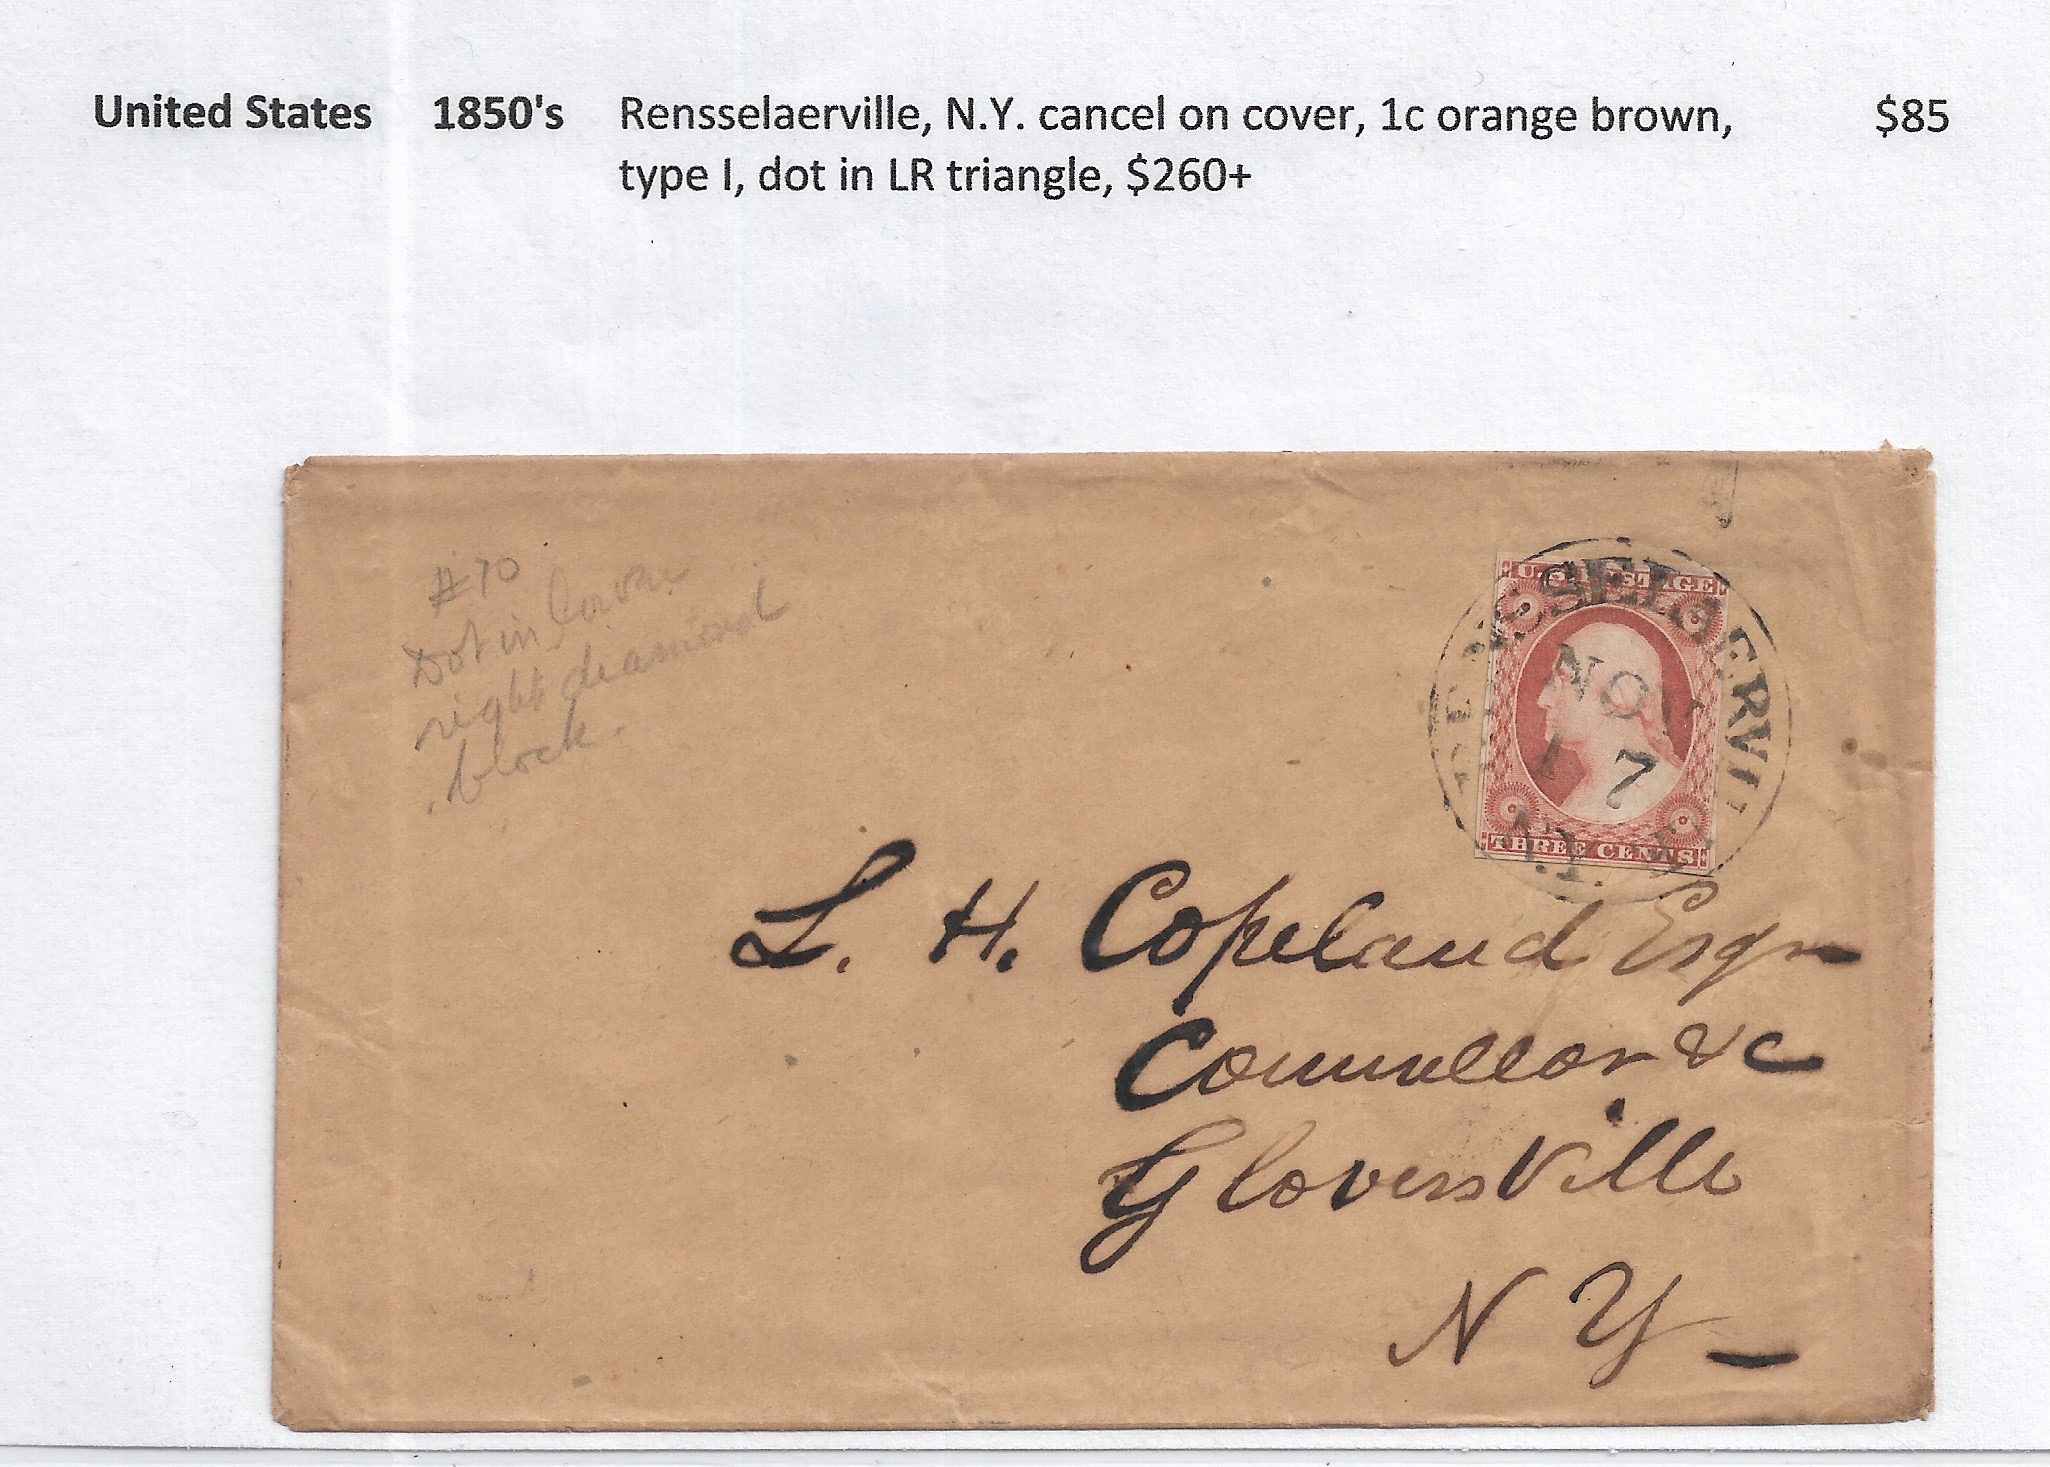 United States 1850's Rensselaerville, N.Y. cancel on cover, 1c orange brown, $85
type I, dot in LR triangle, $260+
#70
Dot in lower
right diamond
block.
U.S. POSTAGE
NOV
17
N.Y.
THREE CENTS
L. H. Copeland Esqr
Counsellor &c
Gloversville
N Y